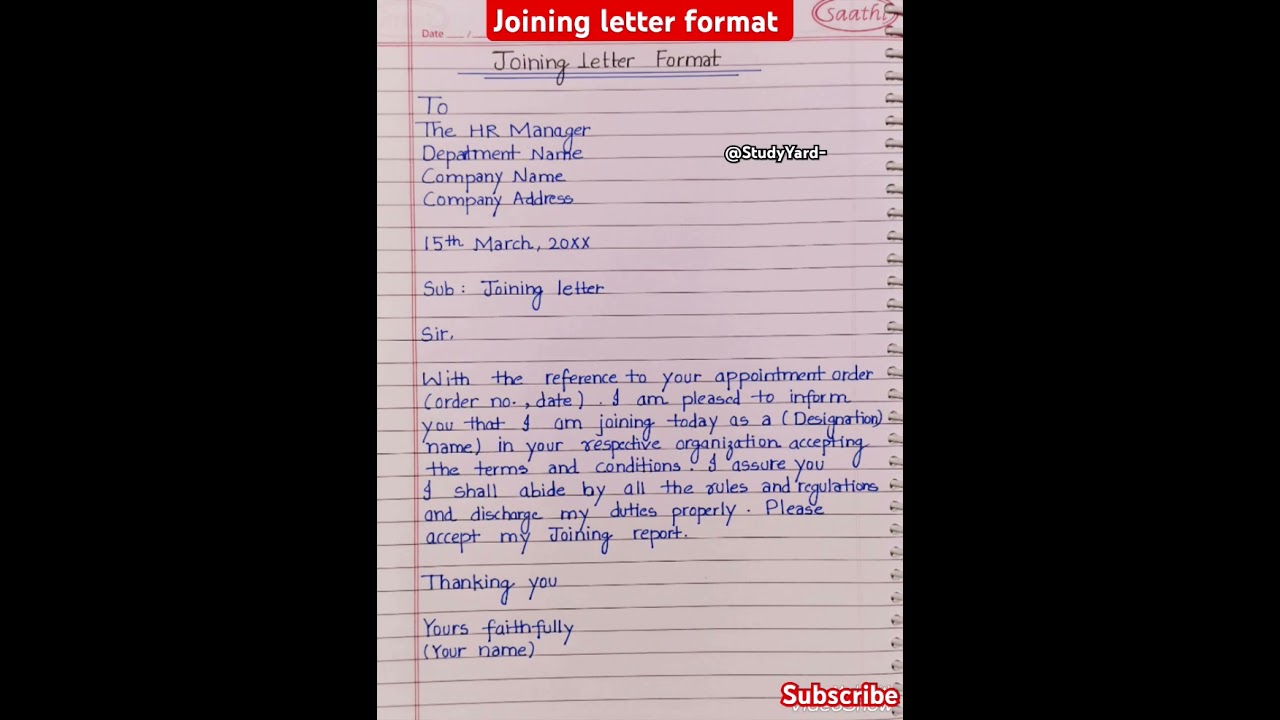 Joining letter format
Saathi
Date __ / __
Joining Letter Format
To
The HR Manager
Department Name
@StudyYard-
Company Name
Company Address
15th March, 20XX
Sub : Joining letter
Sir,
With the reference to your appointment order
(order no., date) . I am pleased to inform
you that I am joining today as a (Designation)
name) in your respective organization accepting
the terms and conditions. I assure you
I shall abide by all the rules and regulations
and discharge my duties properly. Please
accept my Joining report.
Thanking you
Yours faithfully
(Your name)
Subscribe